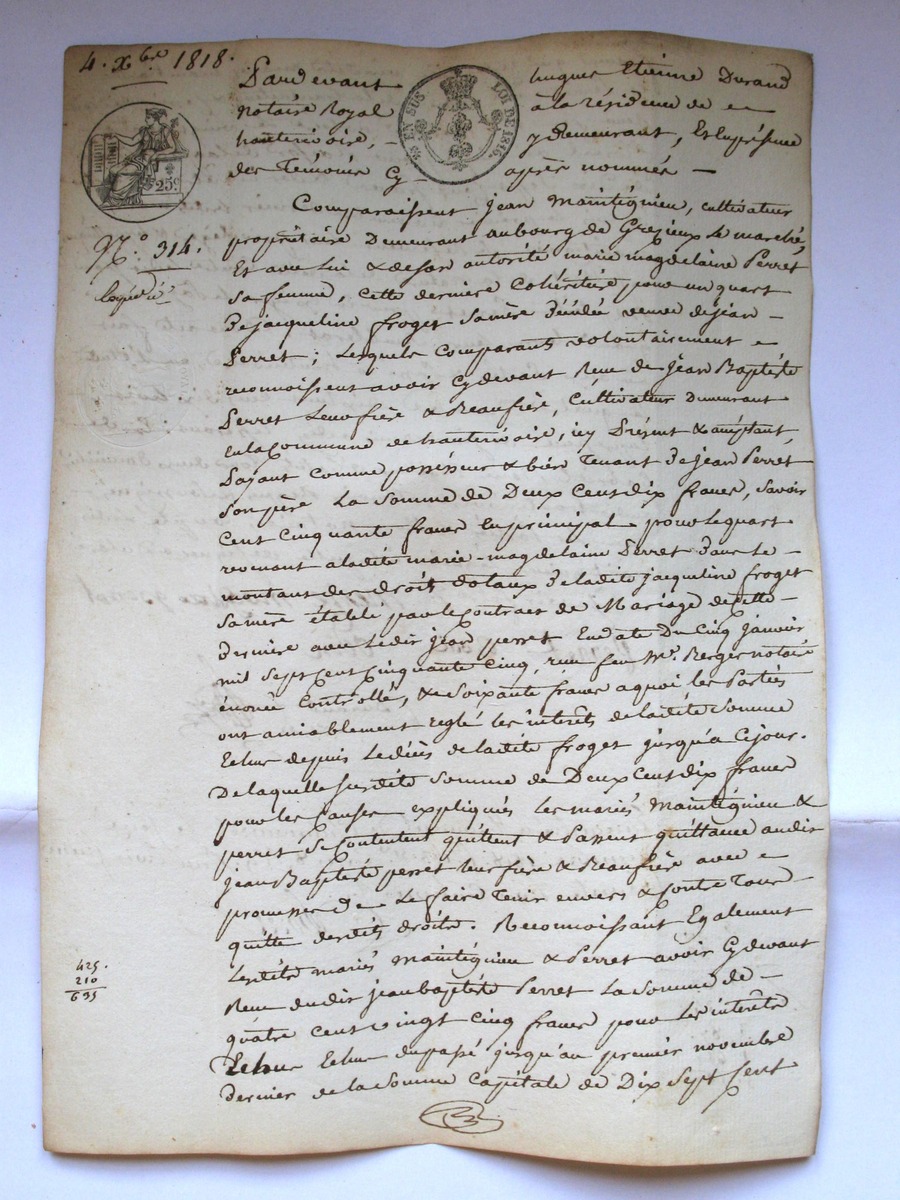 4. Xbre 1818.
Pardevant hugues Etienne Durand
notaire Royal à la résidence de
hauterivoire, y demeurant, Et en présence
des Témoins Cy après nommés
EN SUS LOI DE 1816.
25c
Comparaissent jean Maintigneu, cultivateur
propriétaire Demeurant au bourg de Grezieux Le marché,
Et avec Lui & de son autorité marie magdelaine Perret
Sa femme, cette derniere cohéritière pour un quart
De jacqueline froget Sa mère Décédée veuve de jean
Perret; Lesquels Comparants volontairement
reconnoissent avoir Cy devant Reçu de jean Baptiste
Perret Leur frère & Beaufrère, Cultivateur Demeurant
en la Commune de hauterivoire, icy Présent & acceptant,
Payant comme possésseur & bien Tenant De jean Perret
Son père La Somme de Deux Cent dix francs, Savoir
Cent Cinquante francs En principal pour Le quart
revenant a ladite marie-magdelaine Perret Dans Le
montant des droits dotaux De ladite jacqueline froget
Sa mère établi par le Contrat de Mariage de cette
Dernière avec Ledit jean perret En date Du Cinq janvier
mil Sept Cent Cinquante Cinq, reçu feu Me. Berger notaire
énoncé Controllé, & Soixante francs a quoi les Parties
ont amiablement reglé les interêts de ladite Somme
Echus depuis Le décès de ladite froget jusqu'à Ce jour.
De laquelle Susdite Somme de Deux Cent dix francs
pour les Causes expliquées les mariés Maintigneu &
perret Se Contentent quittent & Passent quittance audit
jean Baptiste perret leur frère & Beaufrère avec
promesse de Le faire Tenir envers & contre Tous
quitte desdits droits. Reconnoissant Egalement
Lesdits mariés Maintigneu & Perret avoir Cy devant
Reçu dudit jean baptiste Perret La Somme de
quatre cent vingt cinq francs pour les interêts
Echus Echus du passé jusqu'au premier novembre
Dernier de la Somme Capitale de Dix Sept Cent
No. 314.
425.
210
635